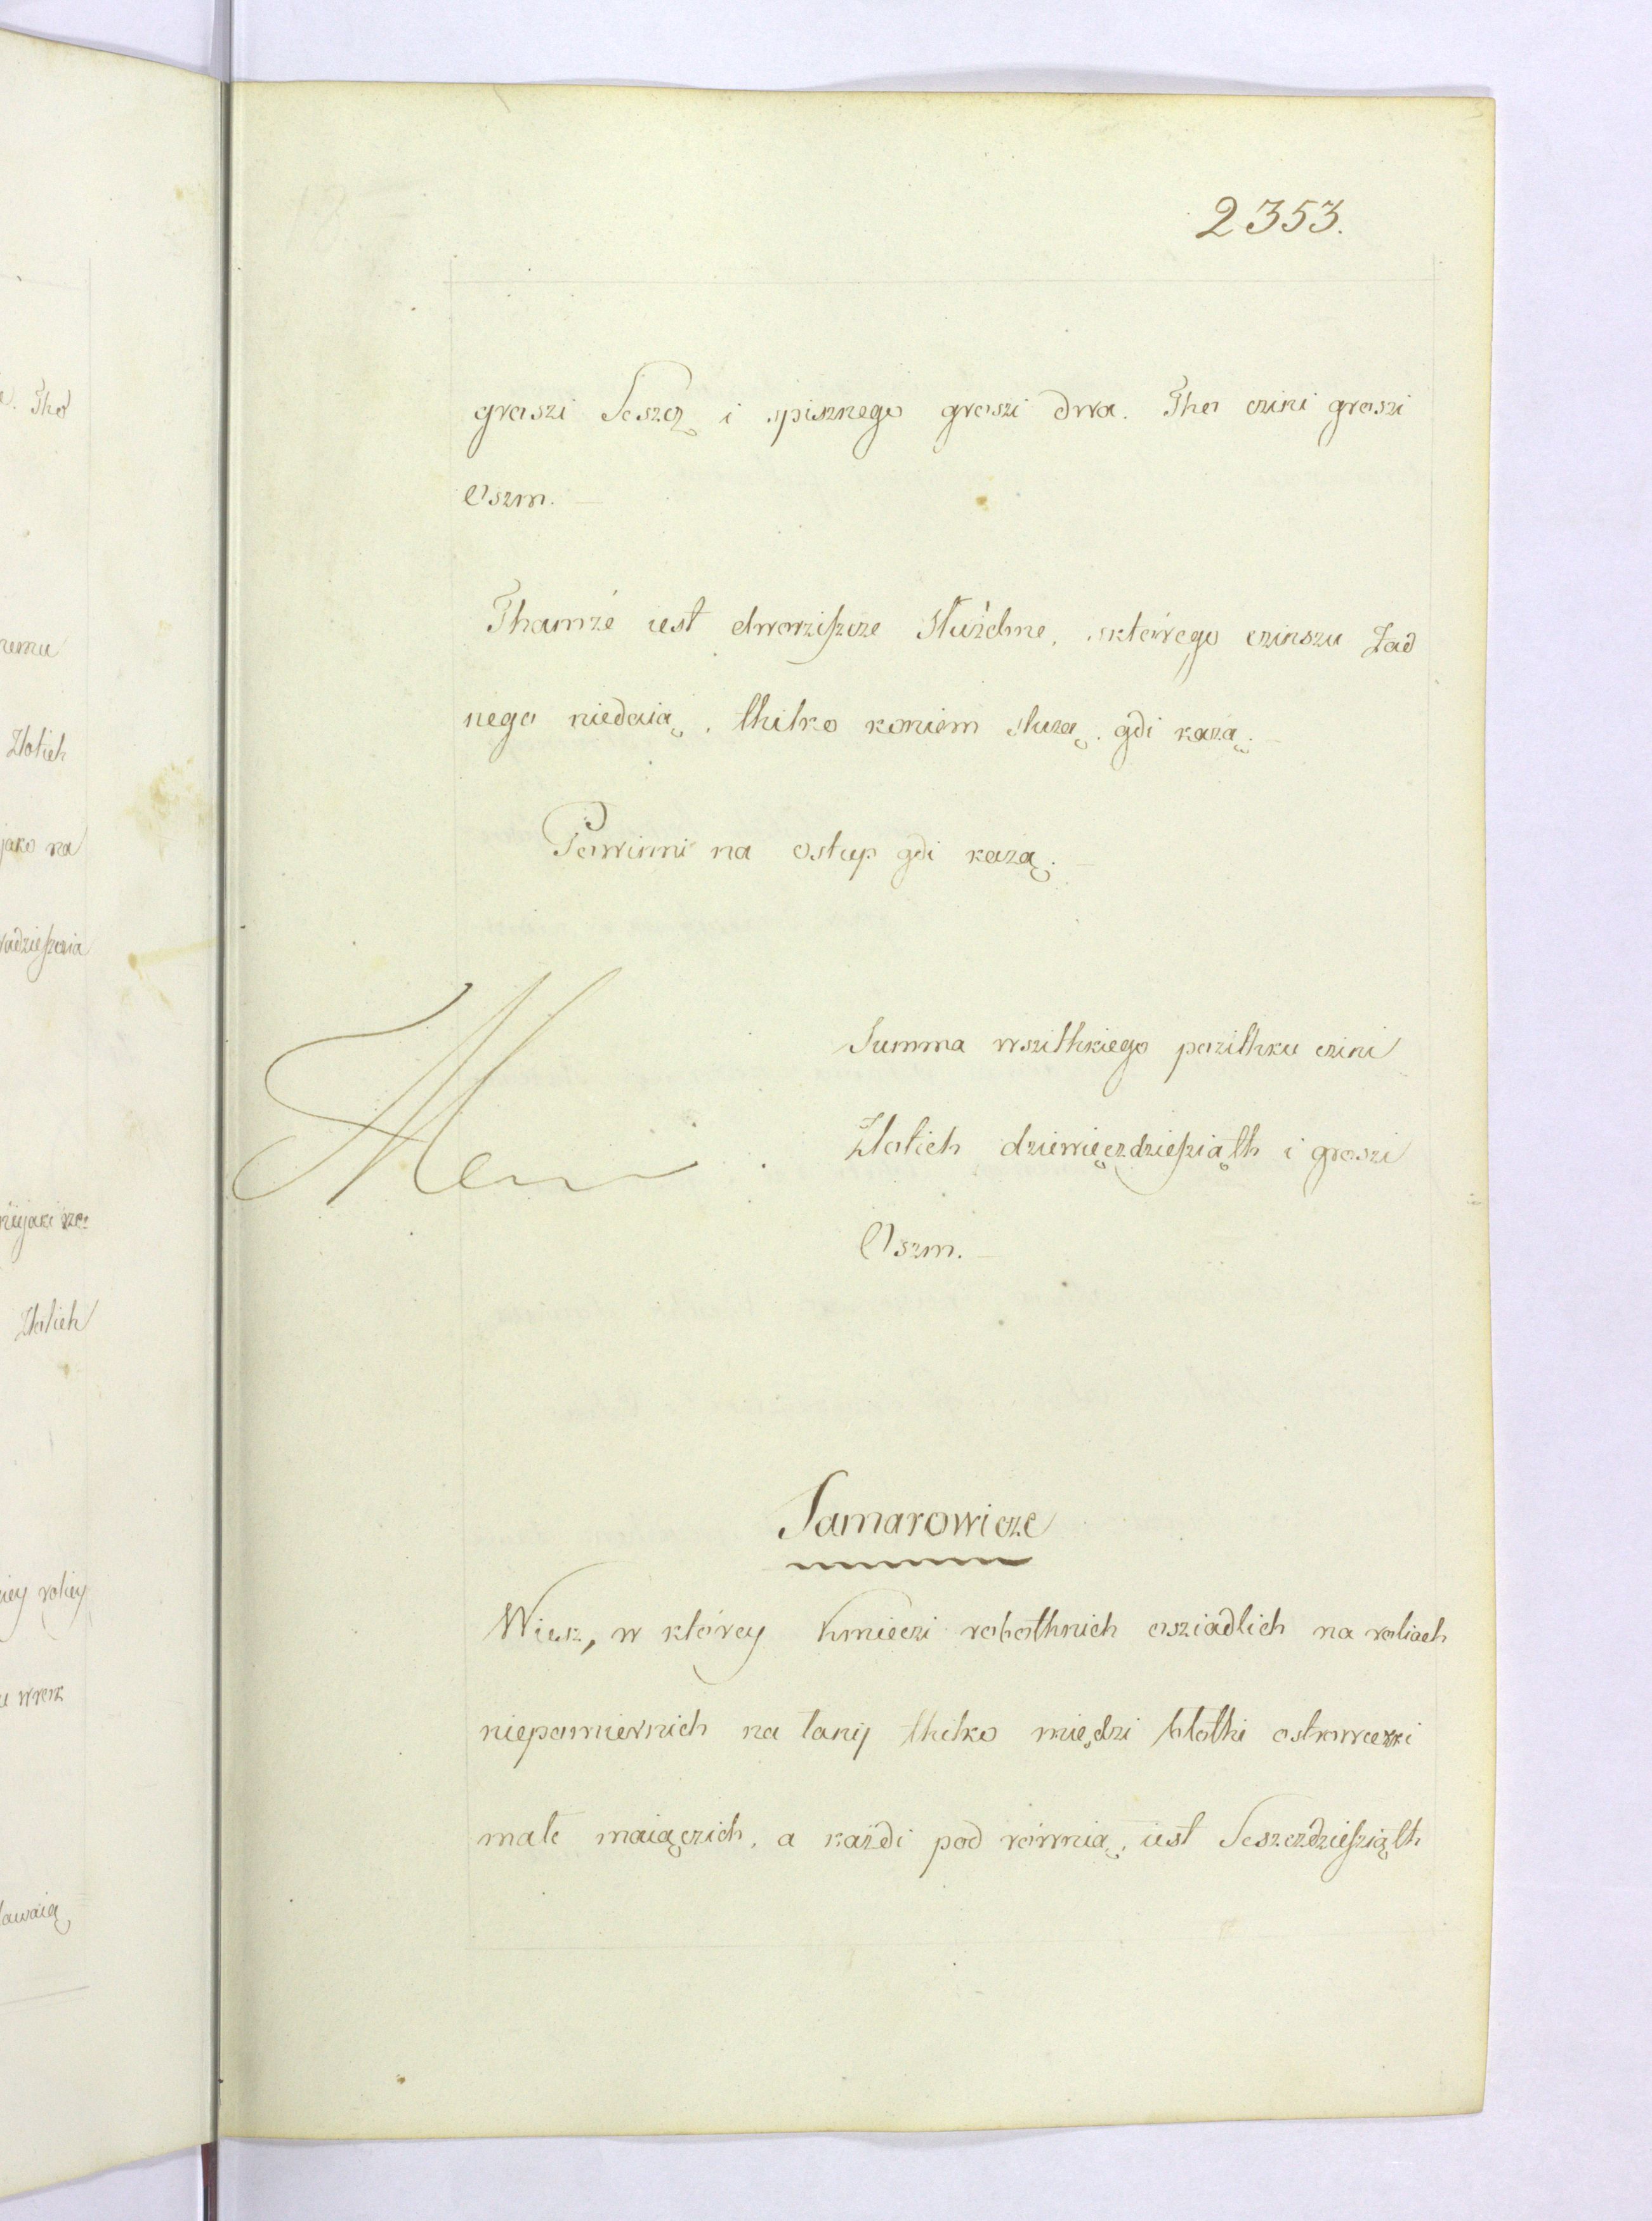 2353.
groszi Seszcz i spisznego groszi dwa. Tho czini groszi
Oszm. —
Thamże iest dworziszcze służebne, sktórego czinszu Żad
nego niedaią, thilko koniem służą, gdi każą. —
Powinni na ostup gdi każą. —
Summa wszithkiego pożithku czini
Złotich dziewięczdziesziąth i groszi
Oszm. —
Samarowicze
Wiesz, w którey Kmieczi robothnich osziadlich na roliach
niepomiernich na łany thilko między błothi ostrowczki
małe maiączich, a każdi pod równią, iest Seszczdziesziąth
Tho
Złotich
jako na
Złotich
roliey